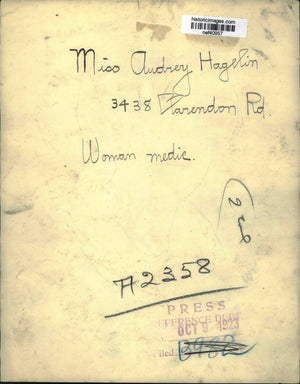 historicimages.com
nef40957
Miss Audrey Hagelin
3438 Clarendon Rd.
Woman medic.
A2358
PRESS
REFERENCE DEPT
OCT 9 1923
Filed